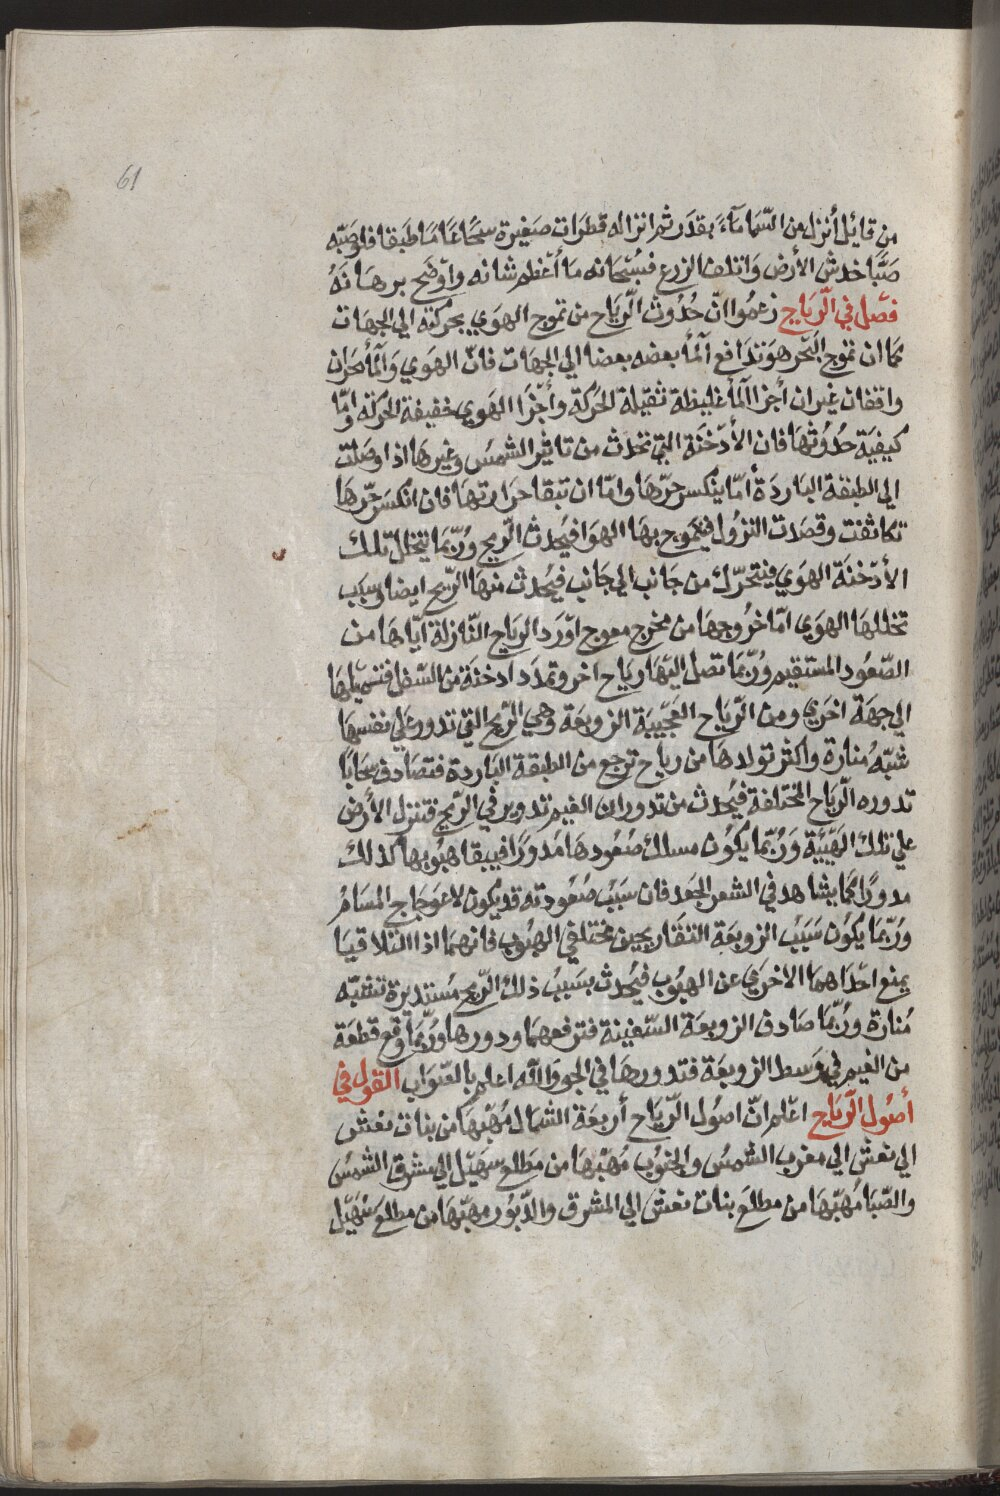 61
من قائل أنزل من السّما مآء بقدر ثم انزاله قطرات صغيرة سحّا عاما طبقا فلو صبّه
صبّا خدش الأرض واتلف الزرع فسُبحانه ما أعظم شانه واوضح برهانهُ
فصل في الرّياح زعموا انّ حُدُوث الّرياح من تموج الهوي بحركته الي الجهات
كما ان تموج البّحر هو تدافع الماء بعضه بعضا الي الجهات فانّ الهوي والماء بحران
واقفان غير ان أجزا الماء غليظة ثقيلة الحركة وأجزا الهوي خفيفة الحركة وامّا
كيفيّة حدُوثها فان الأدخنة التي تحدث من تاثير الشمس وغيرها اذا وصلت
الي الطبقة الباردة أمّا ينكسر حرّها وامّا ان تبقا حرارتها فان انكسر حّرها
تكاثفت وقصدت النزول فيتموج بها الهوا فيُحدث الرّيح ورُبّما يتخلل تلك
الأدخنة الهوي فيتحرّك من جانب الي جانب فيُحدث منها الرّيح ايضا وسبب
تخللها الهوي امّا خرُوجها من مخرج معوج اورد الرياح النّازلة ايّاها من
الصّعُود المستقيم ورُبّما تصل اليّها رياح اخر وتمدد ادخنة من السّفل فتسيّلها
الي جهة اخري ومن الرّياح العجّيبة الزوبعة وهي الرّيح التي تدور علي نفسها
شبّه مُنارة واكثر تولدها من رياح ترجع من الطبقة الباردة فتصادف سحابا
تدوره الرّياح المختلفة فيُحدث من تدوران الغيم تدوير في الرّيح فتنزل الأرض
علي تلك الهّيئة ورُبّما يكون مسلك صُعُودها مُدورًا فيبقا هبُوبها كذلك
مدورًا كما يشاهد في الشعر الجعد فان سبب صُعُودته قد يكون لاعوجاج المسامُ
ورُبّما يكُون سَبَبُ الزوبعة التقا ريحين مختلفي الهبُوب فانهما اذا التلاقيا
يمنع احّداهما الاخري عن الهبُوب فيُحدث بسببُ ذلك الرّيح مُستديرة تشّبه
مُنارة ورُبّما صادف الزوبعة السّفينة فترفعهما ودورها ورُبّما وقع قطعة
من الغيم في وسط الزوبعة فتدورها في الجو والله اعلم بالصّواب القول في
أصُول الرّياح اعّلم انّ اصُول الرّياح أربعة الشمال مُهّبها من بنات نعش
الي نعش الي مغرب الشمس والجنُوب مُهبّها من مطلع سهيّل الي مشرق الشمس
والصّبا مُهبّها من مطلع بنات نعش الي المشرق والدّبُور مهبّها من مطلع سُهيّل